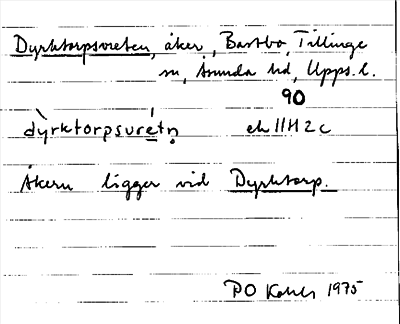 Dyrktorpsvreten, åker, Bastbo, Tillinge
sn, Åsunda hd, Upps. l.
90
dỳrktorpsvrétṇ ek 11H2c
Åkern ligger vid Dyrktorp.
PO 1975